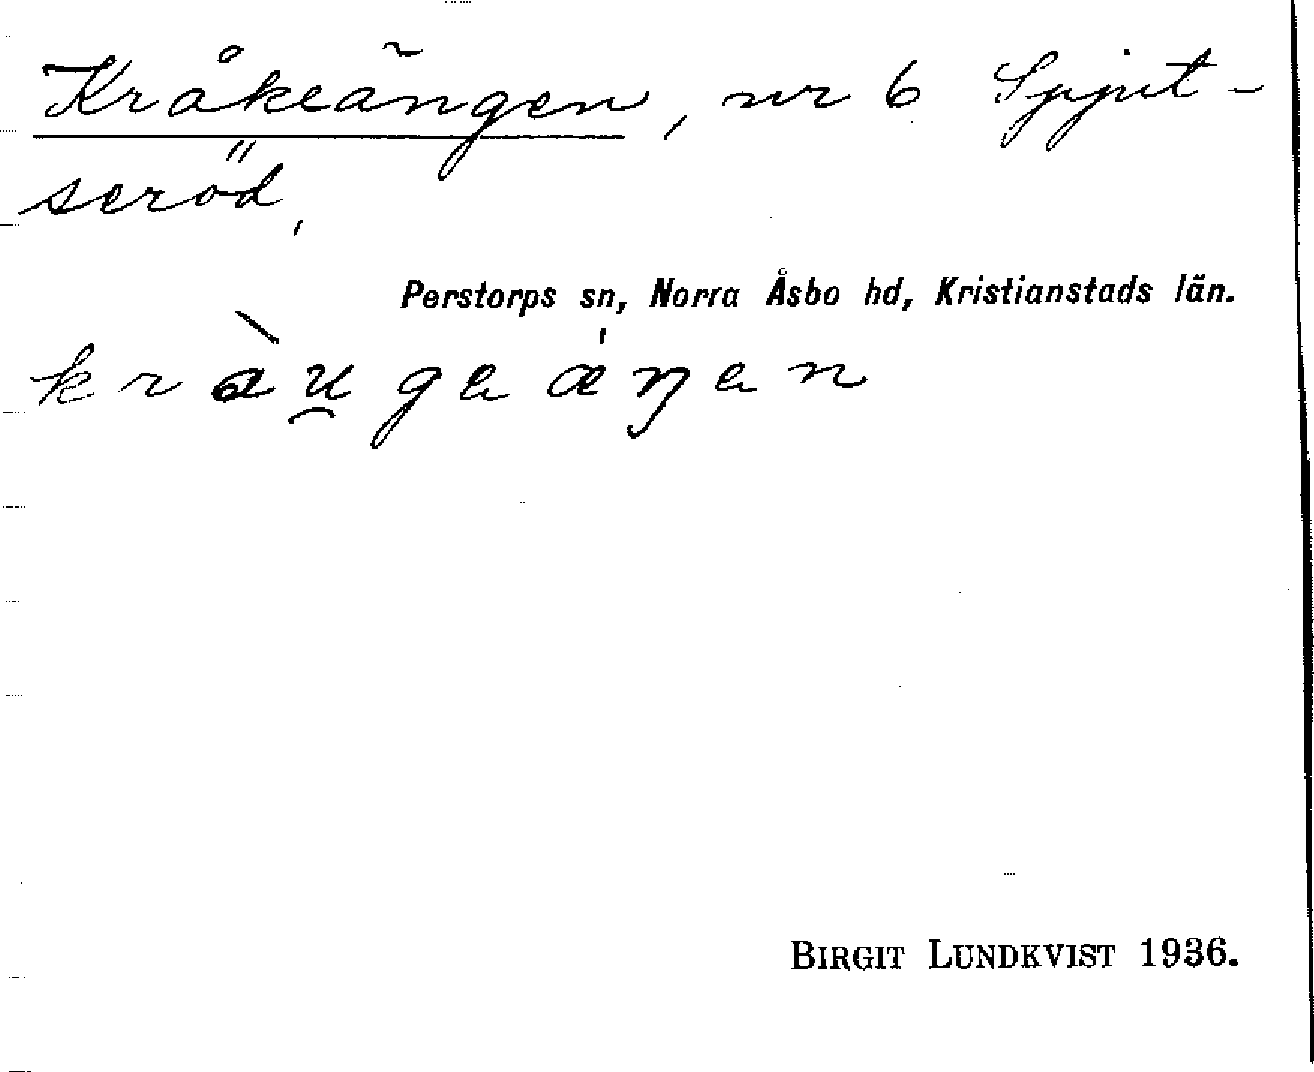 Kråkeängen, nr 6 Spjut-
seröd,
Perstorps sn, Norra Åsbo hd, Kristianstads län.
kràu̯gaǽŋan
BIRGIT LUNDKVIST 1936.